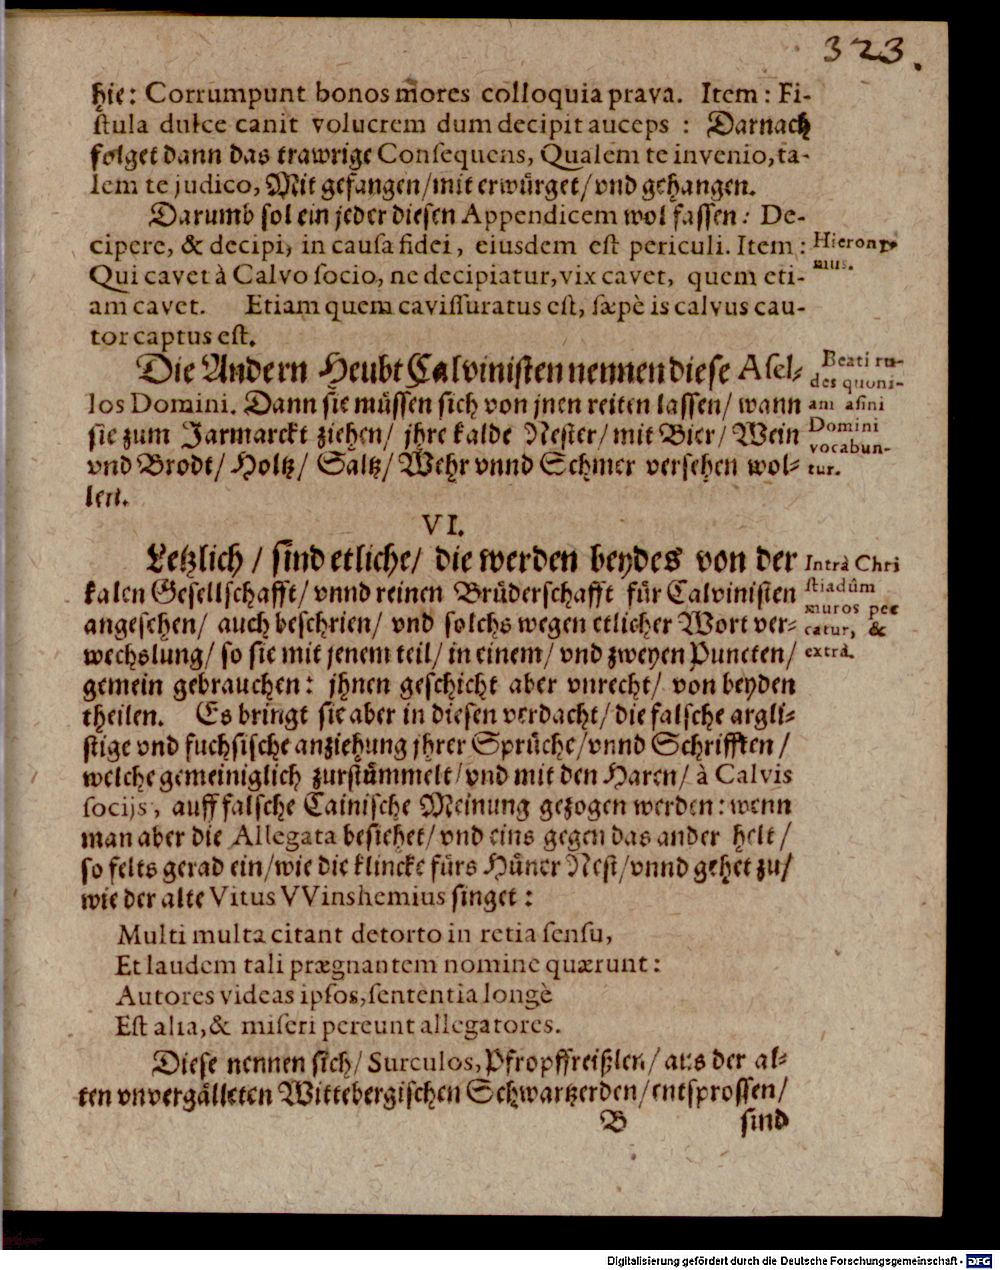 323.
hie: Corrumpunt bonos mores colloquia prava. Item: Fi-
stula dulce canit volucrem dum decipit auceps : Darnach
folget dann das trawrige Consequens, Qualem te invenio, ta-
lem te judico, Mit gefangen/mit erwürget/vnd gehangen.
Darumb sol ein jeder diesen Appendicem wol fassen: De-
cipere, & decipi, in causa fidei, eiusdem est periculi. Item:
Hierony-
mus.
Qui cavet à Calvo socio, ne decipiatur, vix cavet, quem eti-
am cavet. Etiam quem cavissuratus est, sæpè is calvus cau-
tor captus est.
Die Andern Heubt Calvinisten nennen diese Asel-
los Domini. Dann sie müssen sich von jnen reiten lassen/ wann
sie zum Jarmarckt ziehen/ jhre kalde Nester/ mit Bier/ Wein
vnd Brodt/ Holtz/ Saltz/ Wehr vnnd Schmer versehen wol-
len.
Beati ru-
des quoni-
am asini
Domini
vocabun-
tur.
VI.
Letzlich / sind etliche/ die werden beydes von der
kalen Gesellschafft/ vnnd reinen Brüderschafft für Calvinisten
angesehen/ auch beschrien/ vnd solchs wegen etlicher Wort ver-
wechslung/ so sie mit jenem teil/ in einem/ vnd zweyen Puncten/
gemein gebrauchen: jhnen geschicht aber vnrecht/ von beyden
theilen. Es bringt sie aber in diesen verdacht/ die falsche argli-
stige vnd fuchsische anziehung jhrer Sprüche/ vnnd Schrifften/
welche gemeiniglich zurstümmelt/ vnd mit den Haren/ à Calvis
socijs, auff falsche Cainische Meinung gezogen werden: wenn
man aber die Allegata besiehet/ vnd eins gegen das ander helt/
so felts gerad ein/ wie die klincke fürs Hüner Nest/ vnnd gehet zu/
wie der alte Vitus VVinshemius singet :
Intrà Chri
stiadûm
muros pec
catur, &
extrà.
Multi multa citant detorto in retia sensu,
Et laudem tali prægnantem nomine quærunt:
Autores videas ipsos, sententia longè
Est alia, & miseri pereunt allegatores.
Diese nennen sich/ Surculos, Pfropffreißlen/ aus der al-
ten vnvergälleten Wittebergischen Schwartzerden/ entsprossen/
B sind
Digitalisierung gefördert durch die Deutsche Forschungsgemeinschaft - DFG